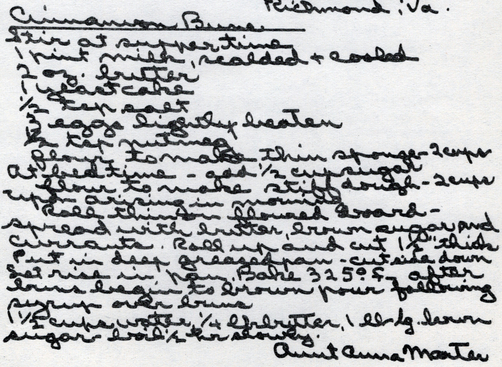 Richmond, Va.
Cinnamon Buns
Stir at suppertime
1 pint milk, scalded + cooled
2 oz. butter
1 yeast cake
1/2 tsp salt
3 eggs lightly beaten
1/2 tsp nutmeg
flour to make thin sponge-2cups
At bedtime - add 1/2 cup sugar
flour to make stiff dough-2cups
up arising in morning
Roll thin on floured board-
spread with butter, brown sugar and
currants. Roll up and cut 1 1/2" thick
Put in deep greased pan-cut side down
Let rise in pan, Bake 325°F, after
buns begin to brown pour following
syrup over buns
1 1/2 cups water, 1/4 lb butter, 1 lb lg. brown
sugar-boil 1/2 hr slowly.
Aunt Anna